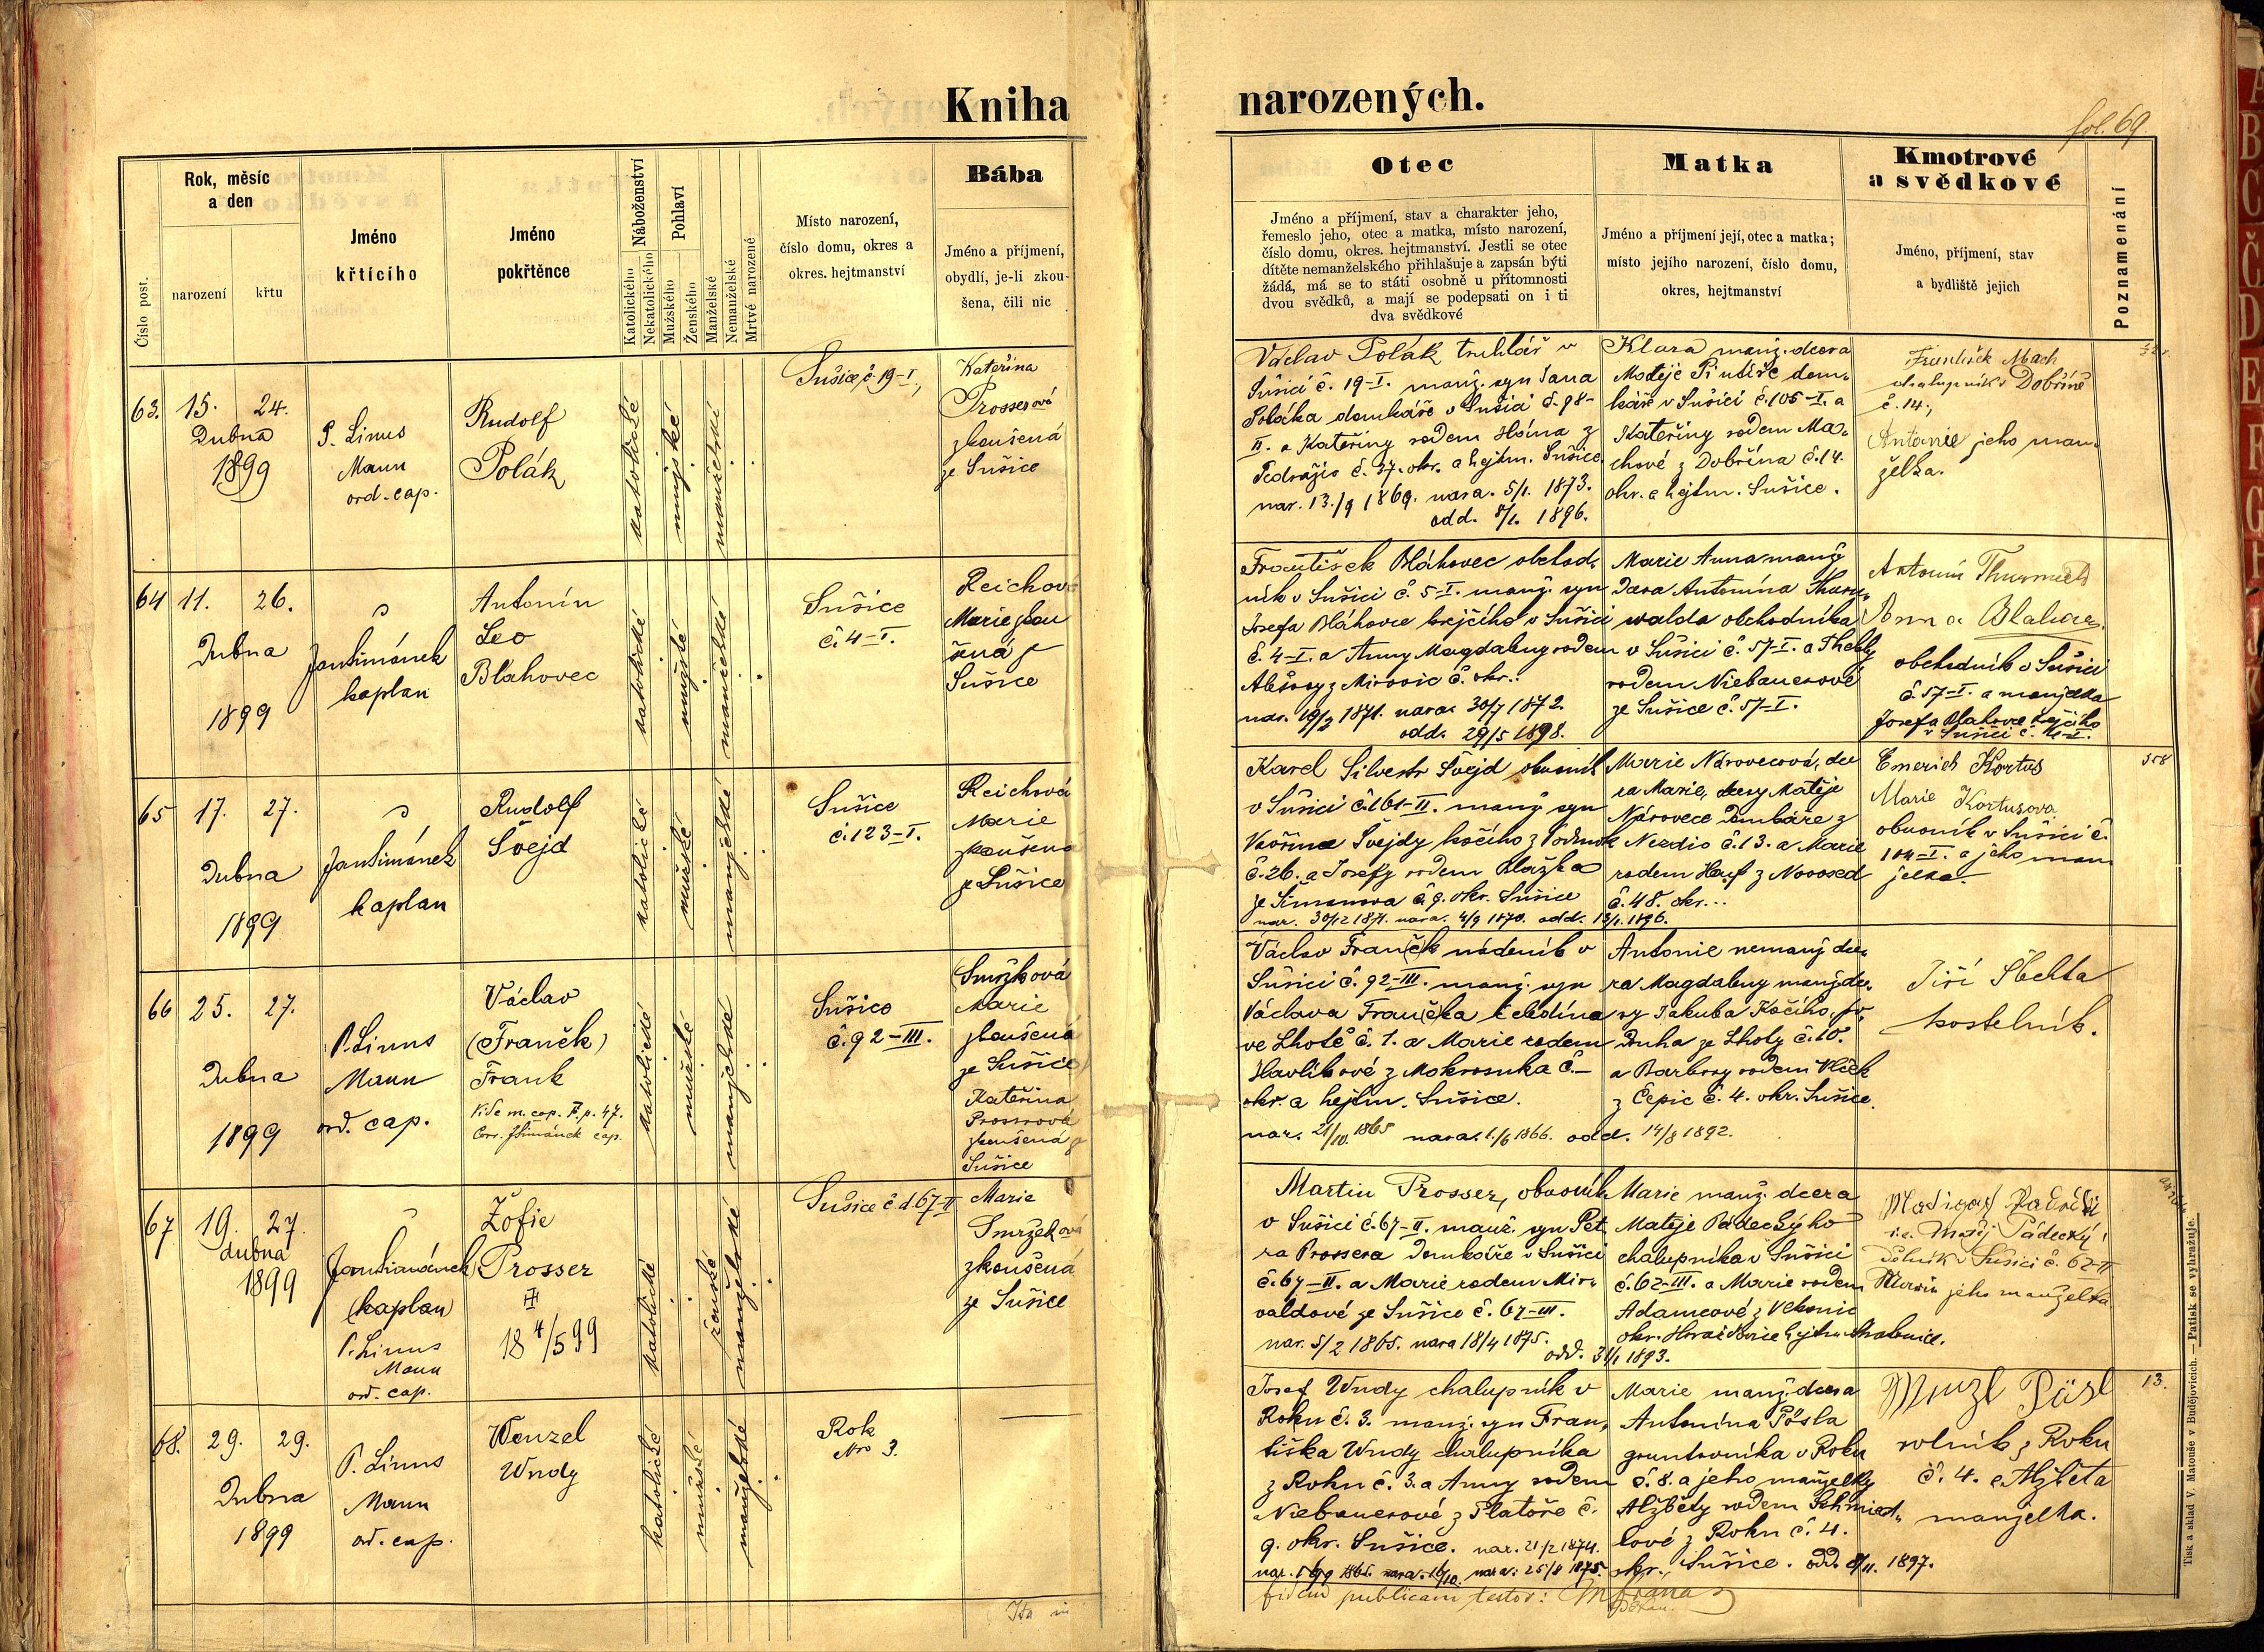 Kniha narozených.
fol. 69
Číslo post.
Rok, měsíc
a den
narození
křtu
Jméno
křtícího
Jméno
pokřtěnce
Náboženství
Katolického
Nekatolického
Pohlaví
Mužského
Ženského
Manželské
Nemanželské
Mrtvé narozené
Místo narození,
číslo domu, okres a
okres. hejtmanství
Bába
Jméno a příjmení,
obydlí, je-li zkou-
šena, čili nic
Otec
Jméno a příjmení, stav a charakter jeho,
řemeslo jeho, otec a matka, místo narození,
číslo domu, okres. hejtmanství. Jestli se otec
dítěte nemanželského přihlašuje a zapsán býti
žádá, má se to státi osobně u přítomnosti
dvou svědků, a mají se podepsati on i ti
dva svědkové
Matka
Jméno a příjmení její, otec a matka;
místo jejího narození, číslo domu,
okres, hejtmanství
Kmotrové
a svědkové
Jméno, příjmení, stav
a bydliště jejich
Poznamenání
63.
15. 24.
Dubna
1899
P. Linus
Mann
ord. cap.
Rudolf
Polák
katolické
mužské
manželské
Sušice, č. 19-I.,
Kateřina
Prosserová
zkoušená
ze Sušice
Václav Polák truhlář v
Sušici č. 19-I. manž. syn Jana
Poláka domkáře v Sušici č. 98-
II. a Kateřiny rodem Hóma z
č. 27. okr. a hejtm. Sušice.
nar. 13./9 1869. nara. 5/1. 1873.
odd. 8/1. 1896.
Klara manž. dcera
Matěje dom-
káře v Sušici č. 105-I. a
Kateřiny rodem Ma-
chové z Dobřína č. 14.
okr. a hejtm. Sušice.
František Mach
chalupník v Dobříně
č. 14.,
Antonie jeho man-
želka.
64
11. 26.
Dubna
1899
Jan Šimánek
kaplan
Antonín
Leo
Bláhovec
katolické
mužské
manželské
Sušice
č. 4-I.
Reichová
Marie zkou
šená z
Sušice
František Bláhovec obchod-
ník v Sušici č. 5-I. manž. syn
Josefa Bláhovce krejčího v Sušici
č. 4-I. a Anny Magdaleny rodem
Alešovy z Mirovic č. okr..
nar. 19/2 1871. nara. 30/7 1872.
odd. 29/5 1898.
Marie Anna manž
Dcera Antonína Thurn-
walda obchodníka
v Sušici č. 57-I. a Thekly
rodem Niebauerové
ze Sušice č. 57-I.
Antonín
Anna Blahovec
obchodník v Sušici
č. 57-I. a manželka
Josefa Blahovce krejčího
v Sušici č. 4-I.
65
17. 27.
Dubna
1899
Jan Šimánek
kaplan
Rudolf
Švejd
katolické
mužské
manželské
Sušice
č. 123-I.
Reichová
Marie
zkoušená
ze Sušice
Karel Silvestr Švejd obuvník
v Sušici č. 161-II. manž syn
Vavřince Švejdy kočího z
č. 26. a Josefy rodem Blažka
ze Šimanova č. 9. okr. Sušice
nar. 30/12 1871. nara. 4/9 1870. odd. 13/1. 1896.
Marie Nárovecová, dce
ra Marie, dcery Matěje
Nárovece Domkáře z
Nezdic č. 13. a Marie
rodem Hauf z Novosed
č. 48. okr...
Emerich Kortus
Marie Kortusova
obuvník v Sušici č.
104-I. a jeho man
želka.
358
66
25. 27.
Dubna
1899
P. Linus
Mann
ord. cap.
Václav
(Franěk)
Frank
Vide m. cop. F. p. 47.
Corr. JŠimánek cap.
katolické
mužské
manželské
Sušice
č. 92-III.
(Smržková
Marie
zkoušená
ze Sušice)
Kateřina
Prosserová
zkoušená z
Sušice
Václav Franěk nádeník v
Sušici č. 92-III. manž. syn
Václava Fraňka čeledína
ve Lhotě č. 1. a Marie rodem
Havlíkové z Mokrosuka č.—
okr. a hejtm. Sušice.
nar. 21/10. 1865 nara. 1./6 1866. odd. 14/8 1892.
Antonie nemanž dce-
ra Magdaleny manž dce-
ry Jakuba Kočího,
Druha ze Lhoty č. 10.
a Barbory rodem Vlček
z Čepic č. 4. okr. Sušice.
Jiří Šbelta
kostelník.
67
19. 27.
dubna
1899
Jan Šimánek
(kaplan)
P. Linus
Mann
ord. cap.
Žofie
Prosser
18 4/5 99
katolické
ženské
manželské
Sušice č. d. 67-II
Marie
Smržková
zkoušená
ze Sušice
Martin Prosser, obuvník
v Sušici č. 67-II. manž. syn Pet
ra Prossera Domkáře v Sušici
č. 67-II. a Marie rodem Mir-
valdové ze Sušice č. 67-III.
nar. 5/2 1865. nara 18/4 1875. odd. 31/1 1893.
Marie manž. dcera
Matěje Pádeckýho
chalupníka v Sušici
č. 62-III. a Marie rodem
Adamcové z
okr. Horažďovice hejtm. Strakonice.
i.e. Matěj Pádecký
dělník v Sušici č. 62-II
Marie jeho manželka
68.
29. 29.
Dubna
1899
P. Linus
Mann
ord. cap.
Wenzel
Wudy
katolické
mužské
manželské
Rok
Nro 3.
Josef Wudy chalupník v
Roku č. 3. manž. syn Fran-
tiška Wudy chalupníka
z Roku č. 3. a Anny rodem
Niebauerové z Platoře č.
9. okr. Sušice. nar. 21/2 1874.
nara: 25/8 1875.
Marie manž. dcera
Antonína Pösla
gruntovníka v Roku
č. 8. a jeho manželky
Alžběty rodem Schmied-
lové z Roku č. 4.
okr. Sušice. odd. 9/11. 1897.
rolník z Roku
č. 4. a Alžběta
manželka.
13.
fidem publicam testor:
Tisk a sklad V. Matouše v Budějovicích. — Patisk se vyhražuje.
A
B
C
Č
D
E
F
G